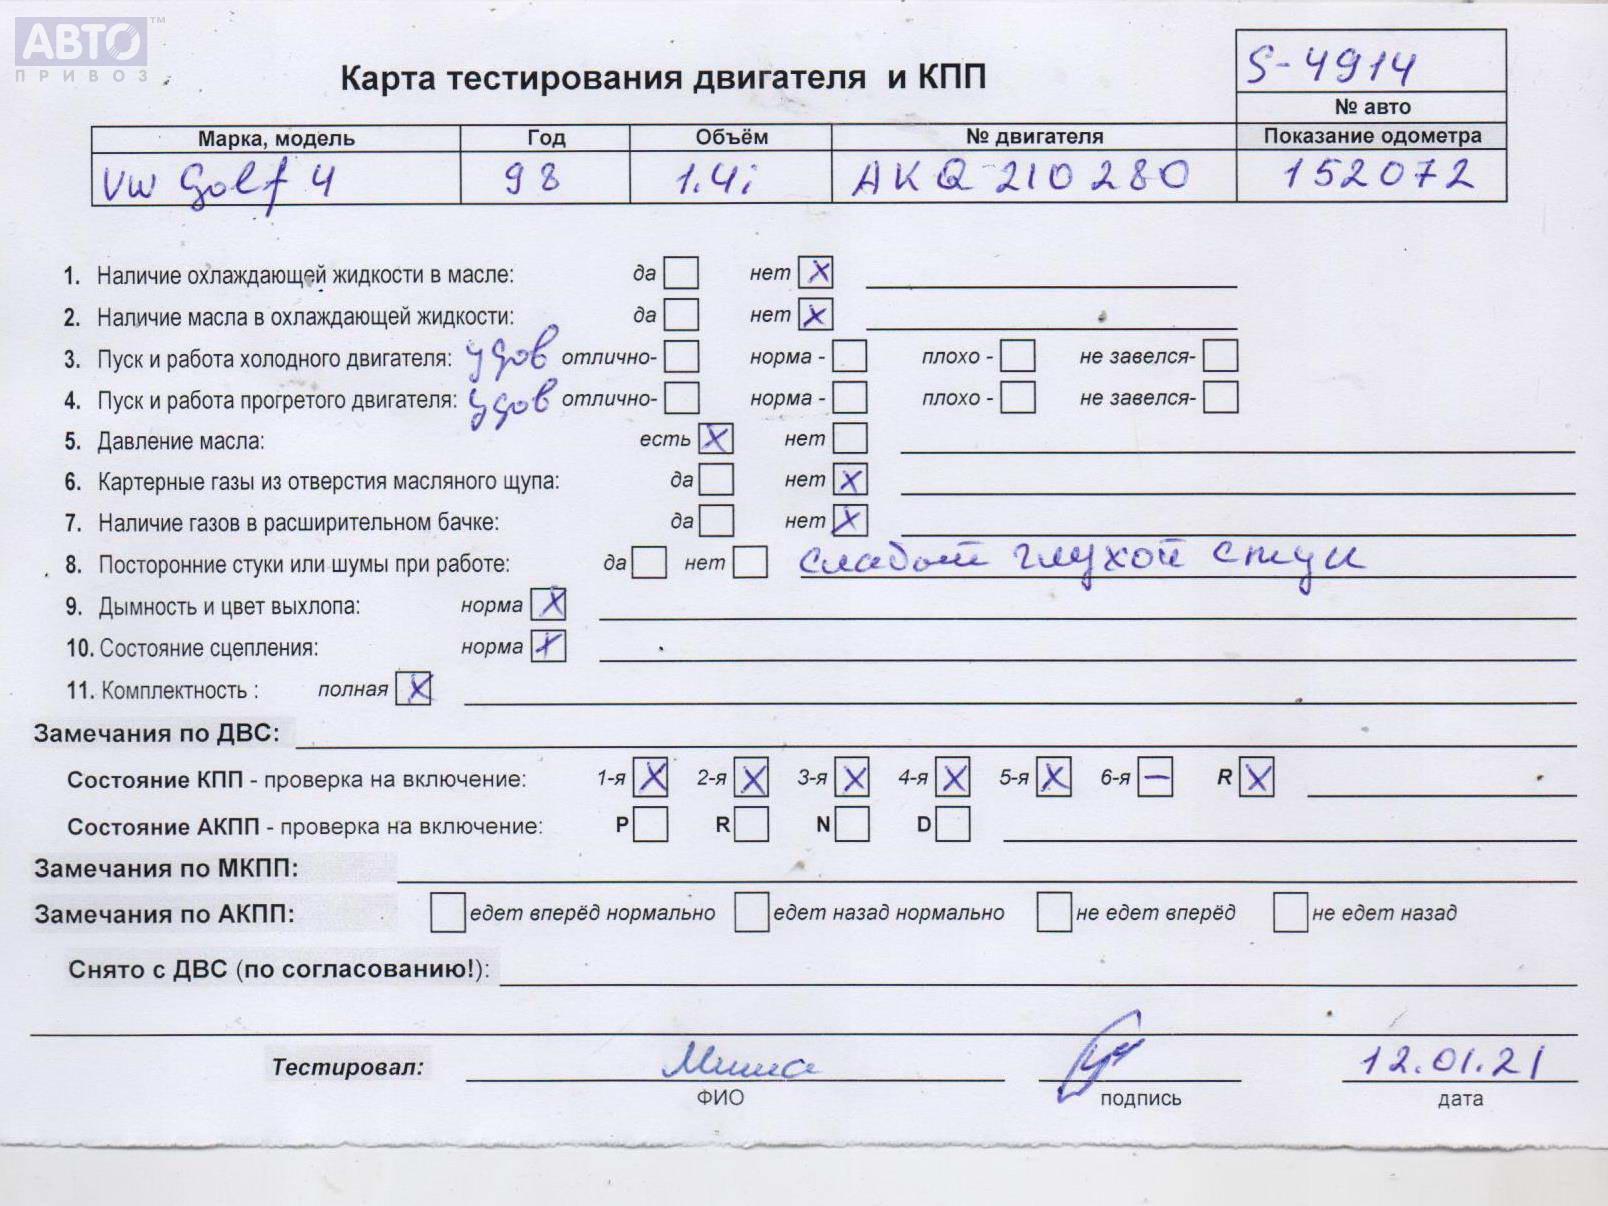 АВТО™
ПРИВОЗ
Карта тестирования двигателя и КПП
S-4914
№ авто
Марка, модель Год Объём № двигателя Показание одометра
VW Golf 4 98 1.4i AKQ 210280 152072
1. Наличие охлаждающей жидкости в масле: да нет X
2. Наличие масла в охлаждающей жидкости: да нет X
3. Пуск и работа холодного двигателя: удов отлично- норма - плохо - не завелся-
4. Пуск и работа прогретого двигателя: удов отлично- норма - плохо - не завелся-
5. Давление масла: есть X нет
6. Картерные газы из отверстия масляного щупа: да нет X
7. Наличие газов в расширительном бачке: да нет X
8. Посторонние стуки или шумы при работе: да нет слабый глухой стук
9. Дымность и цвет выхлопа: норма X
10. Состояние сцепления: норма X
11. Комплектность : полная X
Замечания по ДВС:
Состояние КПП - проверка на включение: 1-я X 2-я X 3-я X 4-я X 5-я X 6-я — R X
Состояние АКПП - проверка на включение: P R N D
Замечания по МКПП:
Замечания по АКПП: едет вперёд нормально едет назад нормально не едет вперёд не едет назад
Снято с ДВС (по согласованию!):
Тестировал: Миша 12.01.21
ФИО подпись дата